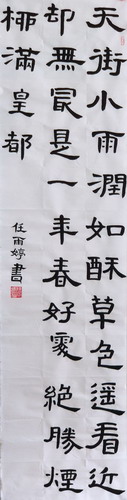 天街小雨潤如酥草色遥看近
却無冣是一年春好處絶勝煙
柳滿皇都
任雨婷書